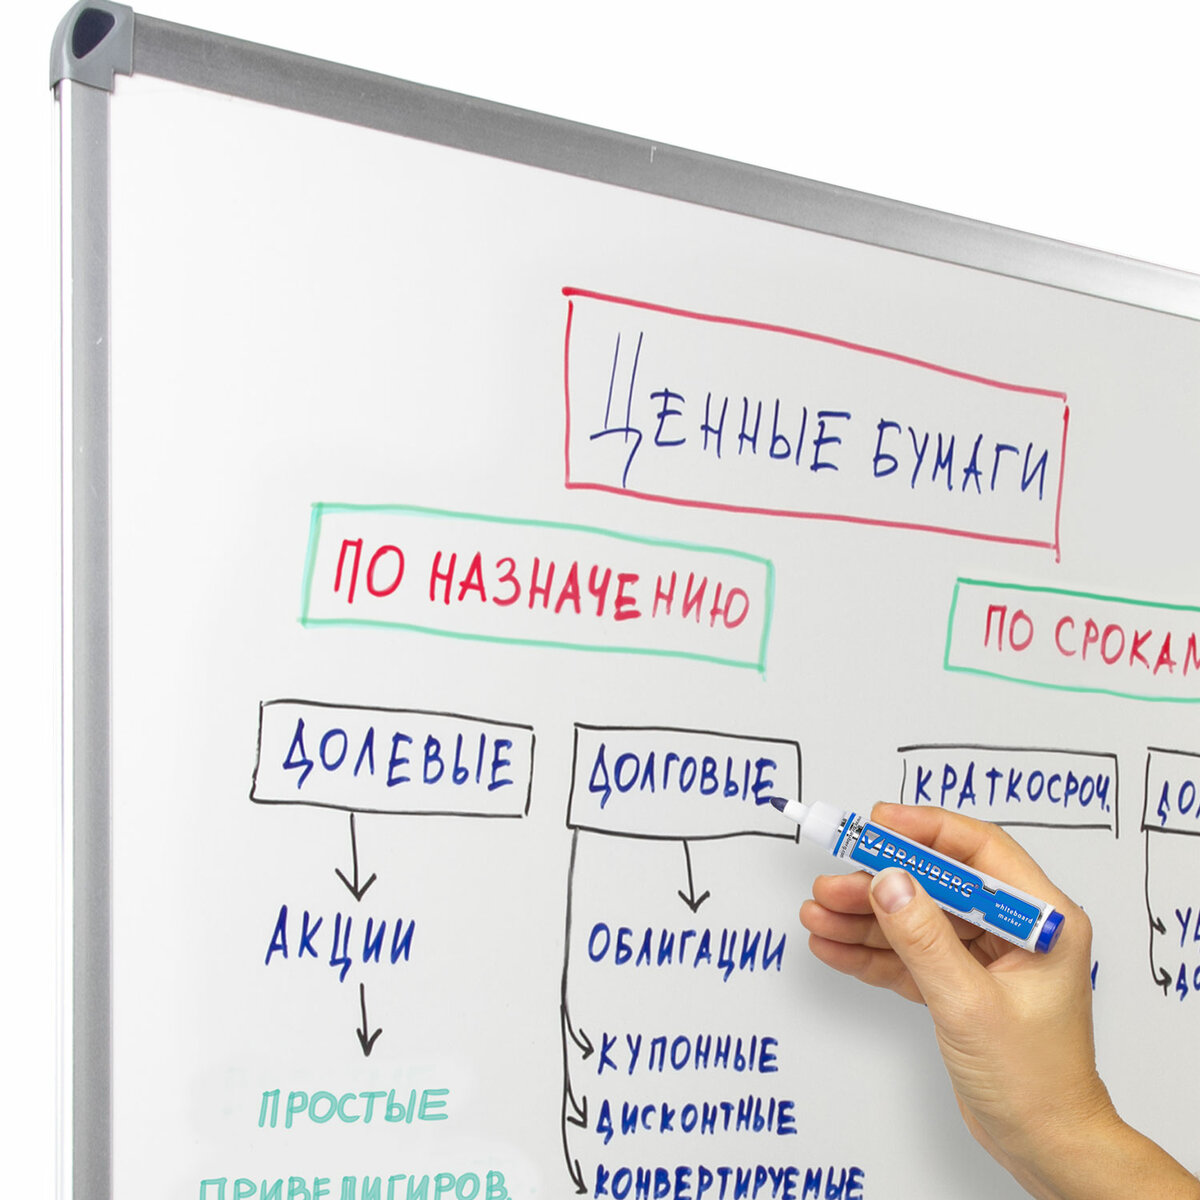 ЦЕННЫЕ БУМАГИ
ПО НАЗНАЧЕНИЮ
ПО СРОКАМ
ДОЛЕВЫЕ
ДОЛГОВЫЕ
КРАТКОСРОЧ.
BRAUBERG
whiteboard
marker
АКЦИИ
ОБЛИГАЦИИ
КУПОННЫЕ
ПРОСТЫЕ
ДИСКОНТНЫЕ
ПРИВЕЛИГИРОВ.
КОНВЕРТИРУЕМЫЕ